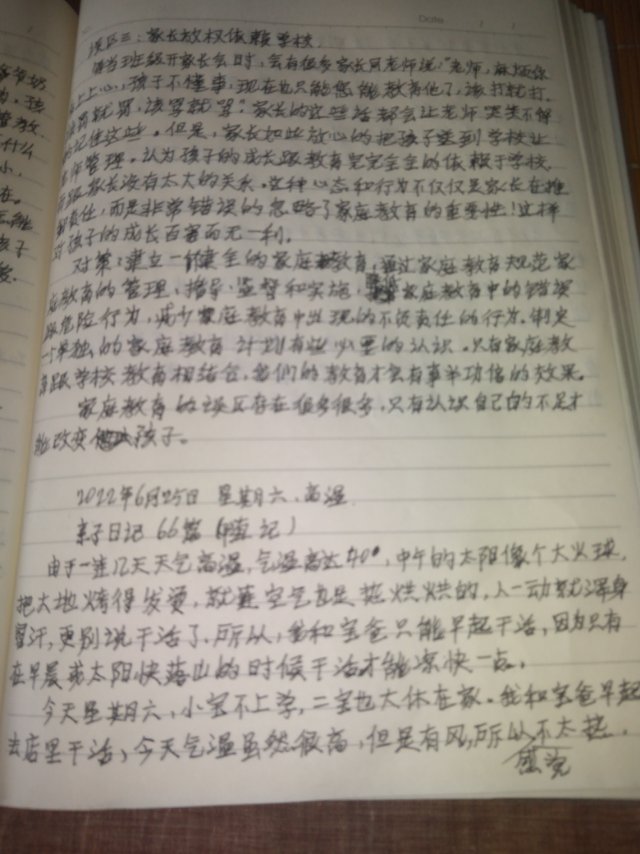 Date
误区三:家长放权依赖学校。
每当班级开家长会时,会有很多家长同老师说:"老师,麻烦你
上上心,孩子不懂事,现在也只能您能教育他了,该打就打,
就罚,该骂就骂。"家长的这些话都会让老师哭笑不得
记住这些。但是,家长如此放心的把孩子送到学校让
老师管理。认为孩子的成长跟教育完完全全的依赖于学校,
跟家长没有太大的关系。这种心态和行为不仅仅是家长在推
卸责任,而是非常错误的忽略了家庭教育的重要性!这样
对孩子的成长百害而无一利。
对策:建立一个健全的家庭教育,通过家庭教育规范家
庭教育的管理、指导、监督和实施,家庭教育中的错误
跟危险行为,减少家庭教育中出现的不负责任的行为。制定
一个单独的家庭教育计划有些必要的认识。只有家庭教
育跟学校教育相结合,我们的教育才会有事半功倍的效果。
家庭教育的误区存在很多很多,只有认识自己的不足才
能改变孩子。
2022年6月25日 星期六 高温
亲子日记 66篇
由于一连几天天气高温,气温高达40°,中午的太阳像个大火球,
把大地烤得发烫,就连空气都是热烘烘的,人一动就浑身
冒汗,更别说干活了。所以,我和宝爸只能早起干活,因为只有
在早晨或太阳快落山的时候干活才能凉快一点。
今天星期六,小宝不上学,二宝也大休在家。我和宝爸早起
去店里干活,今天气温虽然很高,但是有风,所以不太热。
感觉
奶
孩
教
什么
小,
在。
孩子